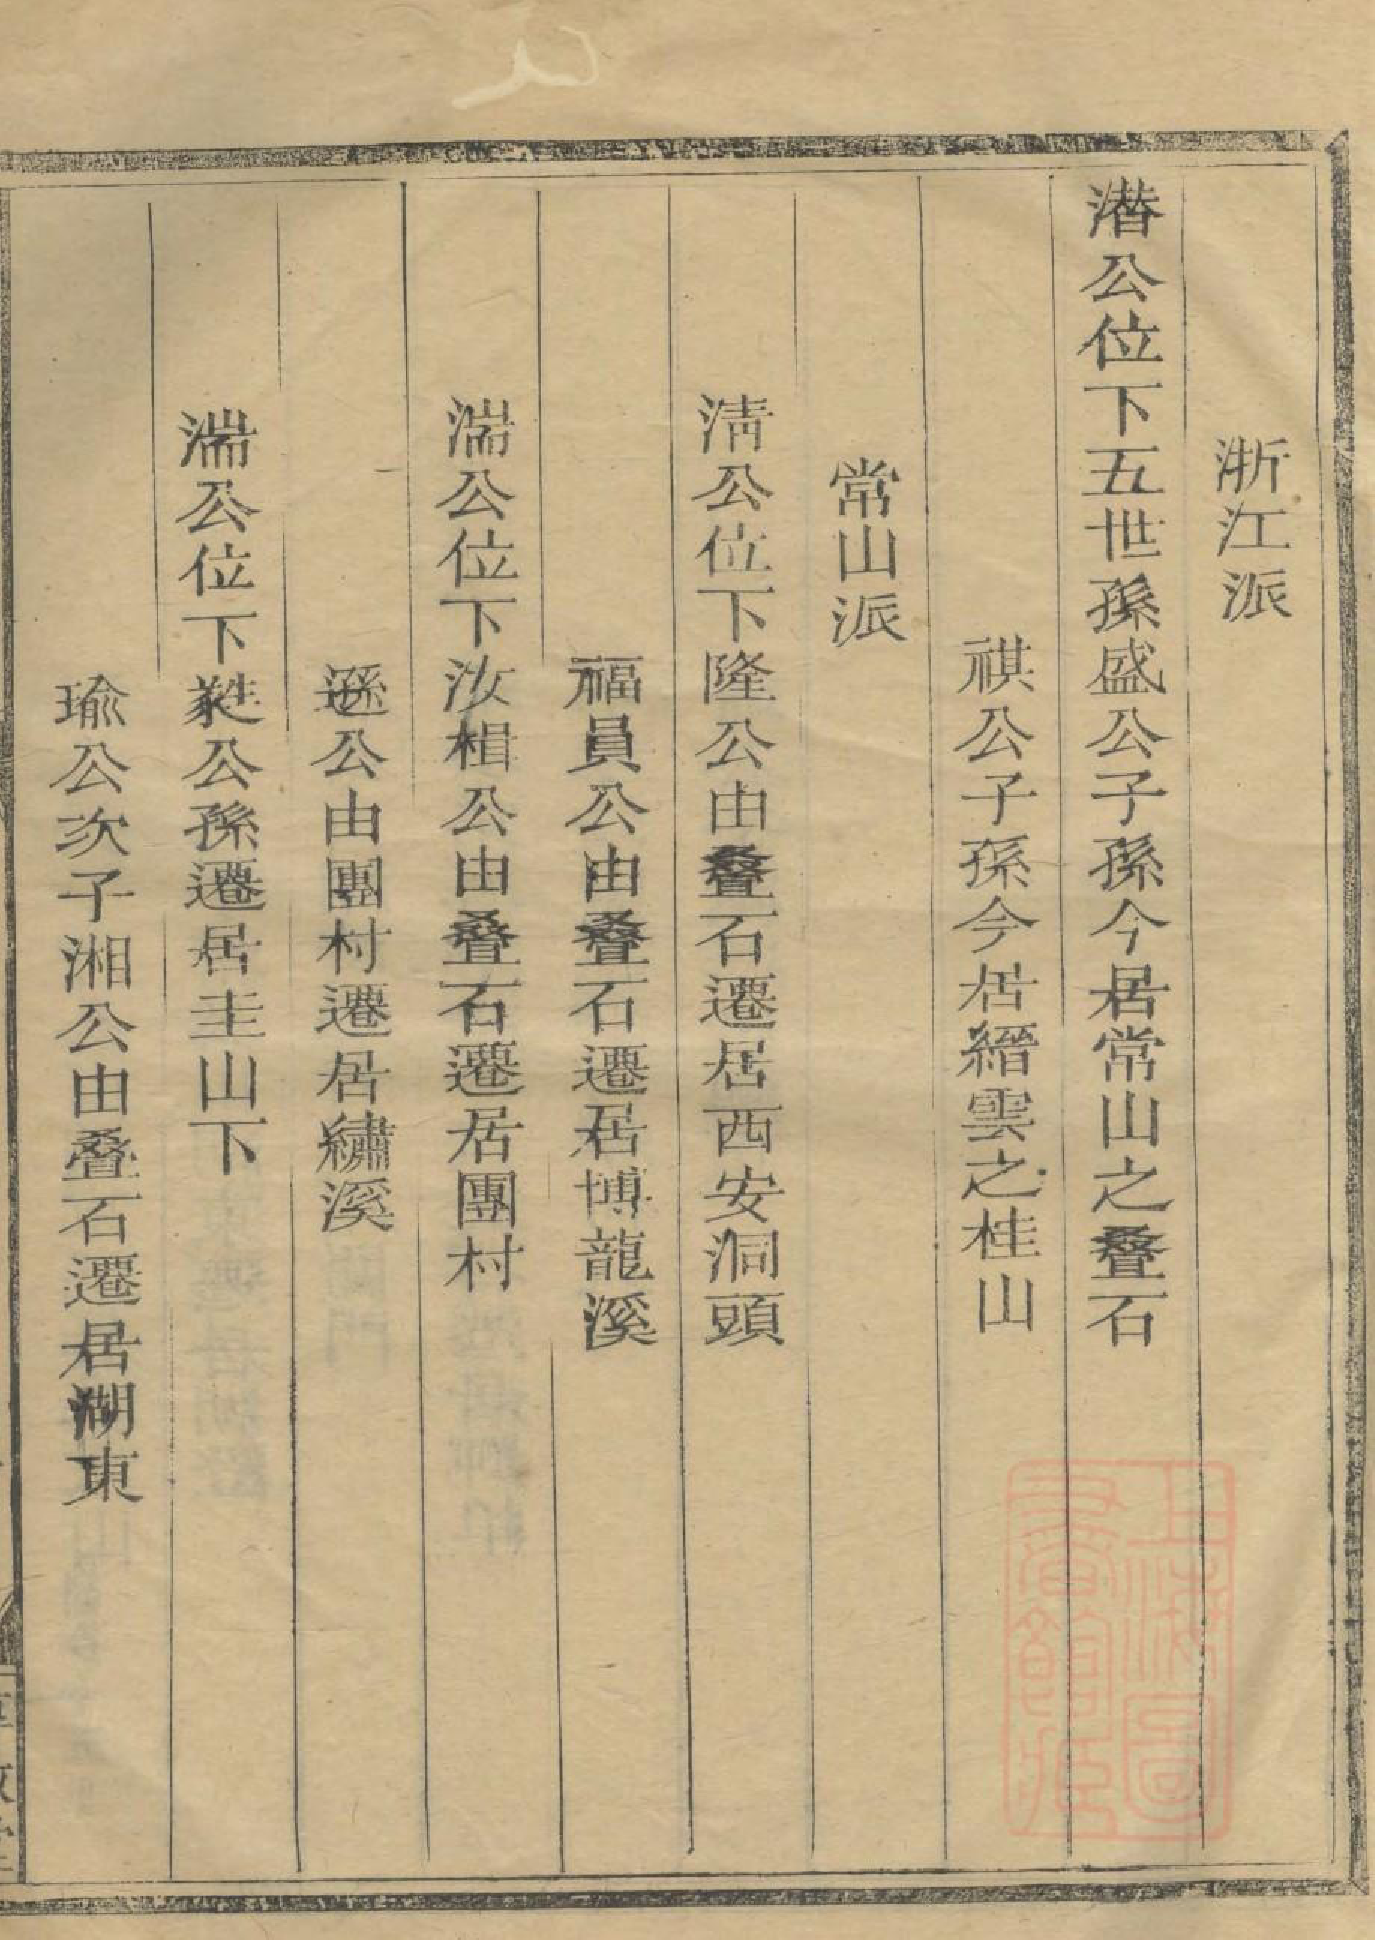 浙江派
潛公位下五世孫盛公子孫今居常山之叠石
祺公子孫今居縉雲之桂山
常山派
淸公位下隆公由叠石遷居西安洞頭
福員公由叠石遷居博龍溪
湍公位下汝楫公由叠石遷居團村
遜公由團村遷居繡溪
湍公位下公孫遷居圭山下
瑜公次子湘公由叠石遷居湖東
上海圖
書館藏